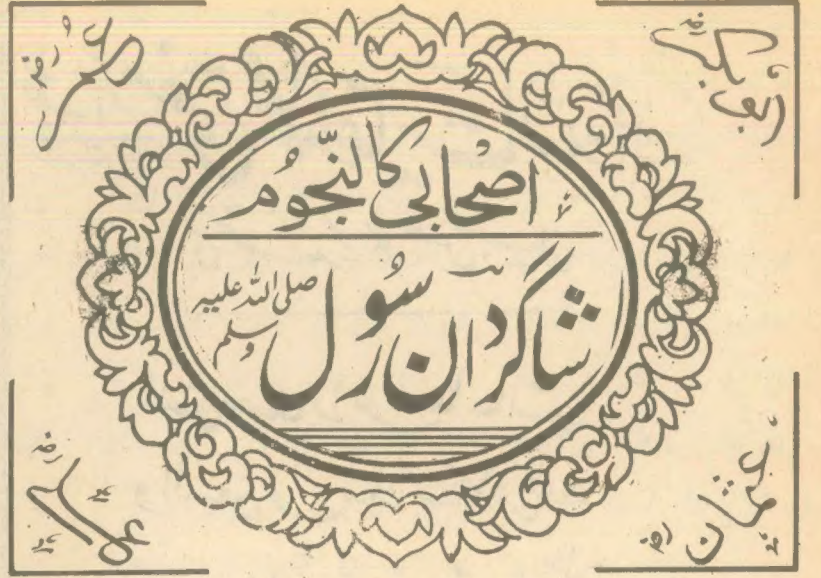 ابوبکرؓ
عمرؓ
اصحابی کالنّجوُم
شاگردانِ رسُول صلی اللہ علیہ وسلم
عثمانؓ
علیؓ